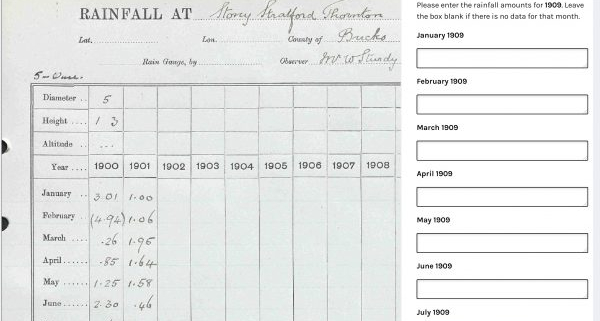 RAINFALL AT Storey Stratford Thornton
Lat. Lon. County of Bucks
Rain Gauge, by Observer Mr W Sturdy
5-
Diameter .. 5
Height .... 1 3
Altitude .. ...
Year .... 1900 1901 1902 1903 1904 1905 1906 1907 1908
January .. 3.01 1.00
February (4.94) 1.06
March .... .26 1.95
April ...... .85 1.64
May ...... 1.25 1.58
June ...... 2.30 .46
Please enter the rainfall amounts for 1909. Leave
the box blank if there is no data for that month.
January 1909
February 1909
March 1909
April 1909
May 1909
June 1909
July 1909